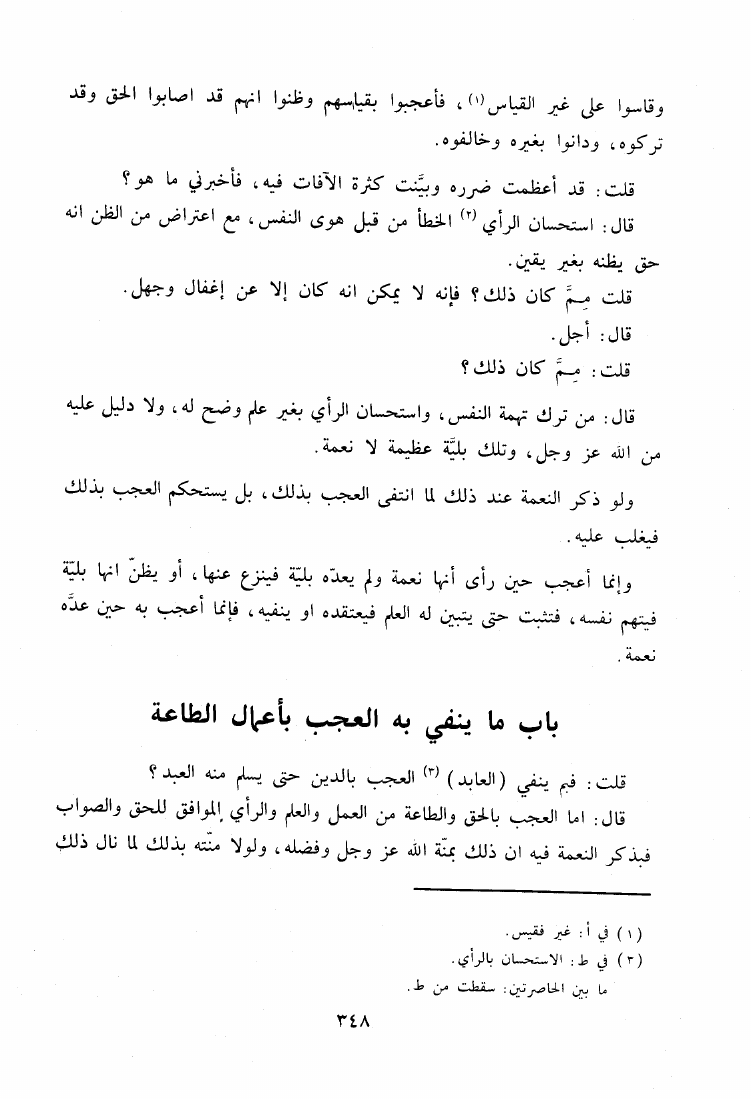 وقاسوا على غير القياس(١)، فأعجبوا بقياسهم وظنوا انهم قد اصابوا الحق وقد
تركوه، ودانوا بغيره وخالفوه.
قلت: قد أعظمت ضرره وبيَّنت كثرة الآفات فيه، فأخبرني ما هو؟
قال: استحسان الرأي(٢) الخطأ من قبل هوى النفس، مع اعتراض من الظن انه
حق يظنه بغير يقين.
قلت مِمَّ كان ذلك؟ فإنه لا يمكن انه كان إلا عن إغفال وجهل.
قال: أجل.
قلت: مِمَّ كان ذلك؟
قال: من ترك تهمة النفس، واستحسان الرأي بغير علم وضح له، ولا دليل عليه
من الله عز وجل، وتلك بليَّة عظيمة لا نعمة.
ولو ذكر النعمة عند ذلك لما انتفى العجب بذلك، بل يستحكم العجب بذلك
فيغلب عليه.
وإنما أعجب حين رأى أنها نعمة ولم يعدّه بليّة فينزع عنها، أو يظنّ انها بليّة
فيتهم نفسه، فتثبت حتى يتبين له العلم فيعتقده او ينفيه، فإنما أعجب به حين عدَّه
نعمة.
باب ما ينفي به العجب بأعمال الطاعة
قلت: فبم ينفي (العابد)(٣) العجب بالدين حتى يسلم منه العبد؟
قال: اما العجب بالحق والطاعة من العمل والعلم والرأي الموافق للحق والصواب
فبذكر النعمة فيه ان ذلك بمنّة الله عز وجل وفضله، ولولا منّته بذلك لما نال ذلك
(١) في أ: غير فقيس.
(٣) في ط: الاستحسان بالرأي.
ما بين الحاصرتين: سقطت من ط.
٣٤٨